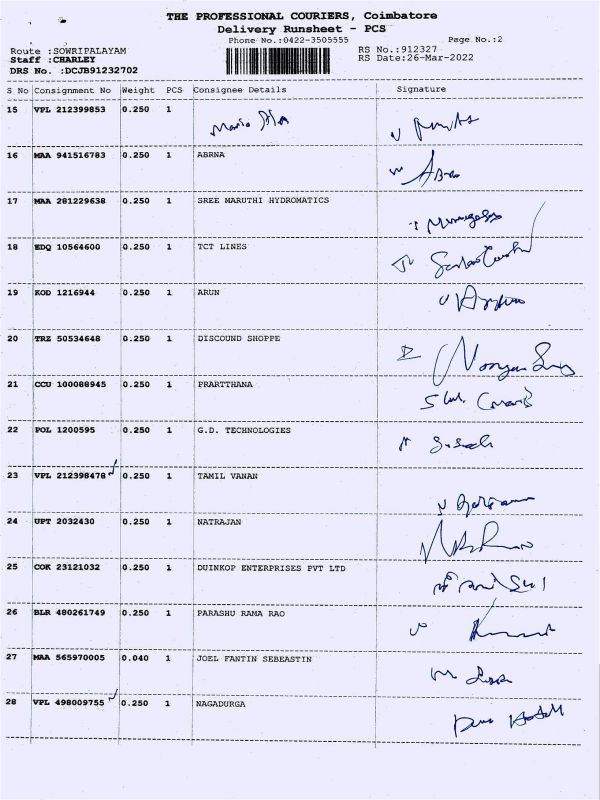 THE PROFESSIONAL COURIERS, Coimbatore
Delivery Runsheet - PCS
Phone No.:0422-3505555 Page No.:2
Route :SOWRIPALAYAM RS No.:912327
Staff :CHARLEY RS Date:26-Mar-2022
DRS No. :DCJB91232702
S No Consignment No Weight PCS Consignee Details Signature
15 VPL 212399853 0.250 1
16 MAA 941516783 0.250 1 ABRNA
17 MAA 281229638 0.250 1 SREE MARUTHI HYDROMATICS
18 EDQ 10564600 0.250 1 TCT LINES
19 KOD 1216944 0.250 1 ARUN
20 TRZ 50534648 0.250 1 DISCOUND SHOPPE
21 CCU 100088945 0.250 1 PRARTTHANA
22 POL 1200595 0.250 1 G.D. TECHNOLOGIES
23 VPL 212398478 0.250 1 TAMIL VANAN
24 UPT 2032430 0.250 1 NATRAJAN
25 COK 23121032 0.250 1 DUINKOP ENTERPRISES PVT LTD
26 BLR 480261749 0.250 1 PARASHU RAMA RAO
27 MAA 565970005 0.040 1 JOEL FANTIN SEBEASTIN
28 VPL 498009755 0.250 1 NAGADURGA